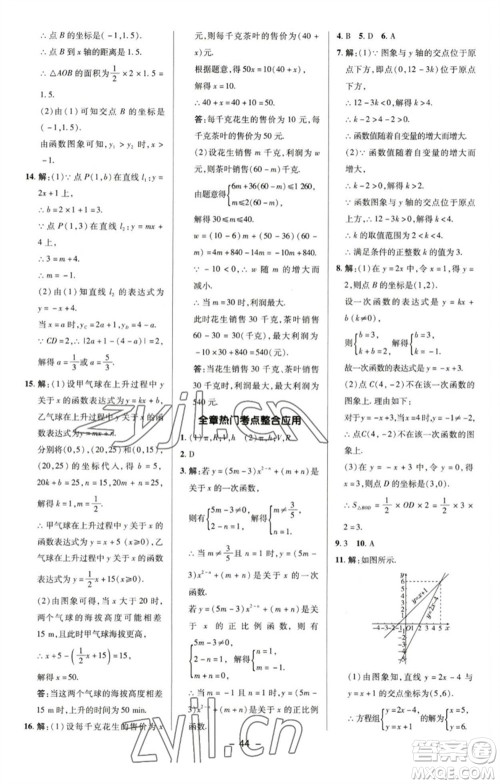 ∴点 B 的坐标为(-1,1.5).
∴点 B 到 x 轴的距离为 1.5.
∴△AOB 的面积为1/2×2×1.5
=1.5.
(2)由(1)可知交点 B 的坐标是
(-1,1.5).
由函数图象可知,y₁>y₂时,x>
-1.
14. 解:(1)∵点 P(1,b)在直线 l₁:y=
2x+1上,
∴b=2×1+1=3.
∵点 P(1,3)在直线 l₂:y=mx+
4上,
∴3=m+4.
∴m=-1.
(2)由(1)知直线 l₂ 的表达式为
y=-x+4.
当 x=a 时,y_C=2a+1,y_D=4-a.
∵CD=2,∴|2a+1-(4-a)|=2.
解得 a=1/3或 a=5/3.
15. 解:(1)设甲气球在上升过程中 y
关于 x 的函数表达式为 y=kx+b,
乙气球在上升过程中 y 关于 x 的
函数表达式为 y=mx+n.
分别将(0,5),(20,25)和(0,15),
(20,25)的坐标代入,得 b=5,
20k+b=25,n=15,20m+n=25,
解得 k=1,m=1/2.
∴甲气球在上升过程中 y 关于 x
的函数表达式为 y=x+5(x≥0),
乙气球在上升过程中 y 关于 x 的
函数表达式为 y=1/2x+15(x≥0).
(2)由图象可知,当这两个气球的
海拔高度相差 15 m 时,x 大于
20,且此时甲气球海拔更高,
∴x+5-(1/2x+15)=15.
解得 x=50.
答:当这两个气球的海拔高度相差
15 m 时,上升的时间为 50 min.
16. 解:(1)设每千克花生的售价为 x
元,则每千克茶叶的售价为(40+
x)元.
根据题意,得
50x=10(40+x).
解得 x=10.
40+x=40+10=50.
答:每千克花生的售价为 10 元,每
千克茶叶的售价为 50 元.
(2)设花生销售 m 千克,利润为 w
元,则茶叶销售(60-m)千克.
由题意得{6m+36(60-m)≤1260,
m≤2(60-m).
解得 30≤m≤40.
w=(10-6)m+(50-36)(60-
m)=4m+840-14m=-10m+840.
∵-10<0,∴w 随 m 的增大
而减小.
∴当 m=30 时,利润最大.
此时花生销售 30 千克,茶叶销售
60-30=30(千克),
w=-10×30+840=540.
答:当花生销售 30 千克,茶叶销售
30 千克时利润最大,最大利润为
540 元.
全章热门考点整合应用
1. (1)π;R,V,h (2)π,h;V,R
2. D
3. 解:若 y=(5m-3)x²⁻ⁿ+(m+n)
是关于 x 的一次函数,
则有{5m-3≠0,
2-n=1,
解得{m≠3/5,
n=1.
∴当 m≠3/5且 n=1 时,y=(5m-
3)x²⁻ⁿ+(m+n)是关于 x 的一次
函数.
若 y=(5m-3)x²⁻ⁿ+(m+n)是关
于 x 的正比例函数,则有
{5m-3≠0,
2-n=1,
m+n=0,
解得{m=-1,
n=1.
∴当 m=-1 且 n=1 时,y=
(5m-3)x²⁻ⁿ+(m+n)是关于 x
的正比例函数.
4. B 5. D 6. A
7. 解:(1)∵图象与 y 轴的交点位于原
点下方,
∴12-3k<0.解得 k>4.
∴k-2>4-2>0.
∴函数值随着自变量的增大而增大.
(2)∵函数值随着自变量的增大而
增大,
∴k-2>0.解得 k>2.
∵函数图象与 y 轴的交点位于原
点上方,∴12-3k>0.解得 k<4.
∴k 的取值范围为 2<k<4.
∴满足条件的正整数 k 的值为 3.
8. 解:(1)在 y=2x 中,令 x=1,得
y=2,则点 B 的坐标是(1,2).
设一次函数的表达式是 y=kx+
b(k≠0),
则{b=3,
k+b=2,
解得{b=3,
k=-1.
故一次函数的表达式是 y=-x+3.
(2)点 C(4,-2)不在该一次函数
的图象上.理由:对于 y=-x+3,
当 x=4 时,y=-1≠-2,
∴点 C(4,-2)不在该函数的图
象上.
(3)在 y=-x+3 中,令 y=0,得
x=3,则点 D 的坐标是(3,0).
∴S△BOD=1/2×OD×2=1/2×3×
2=3.
9. 3 10. A
11. 解:如图所示.
y=x+1
y=2x-2
(1)由图象知,直线 y=x+1 与 y=
2x-2 的交点坐标为(3,4),
44
zyjl.cn
答案圈